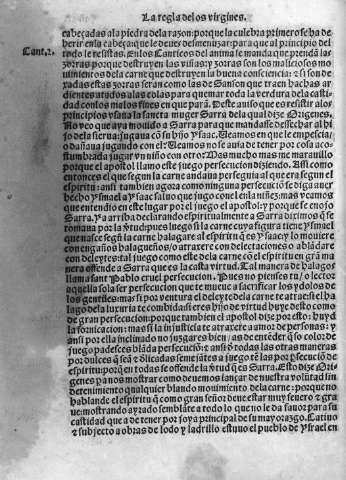 La regla delos virgines.
cabeçadas ala piedra dela razon: porque la culebra primero se ha de
Cant.2.
herir enla cabeça que le deues desmenuzar: para que al principio del
todo le resistas. Enlos Canticos del anima se manda que prendã las
zorras porque destruyen las viñas: y zorras son los maliciosos mo
uimientos dela carne que destruyen la buena consciencia: z si son de
xadas estas zorras seran como las de Sanson que traen hachas ar
dientes atados alas colas para quemar toda la verdura dela casti
dad conlos malos fines en que parã. Deste auiso que es resistir alos
principios vsaua la sancta muger Sarra dela qual dize Origenes.
No veo que aya mouido a Sarra para que mandasse desechar al hi
jo dela sierua: jugaua cõ su hijo ysaac. Veamos en que le empescia:
o dañaua jugando con el: Veamos no se auia de tener por cosa aco
stumbrada jugar vn niño con otro: Des mucho mas me marauillo
porque el apostol llamo este juego persecucion diziendo. Assi como
entonces el que segun la carne andaua perseguia al que era segun el
espiritu: ansi tambien agora como ninguna persecuciõ se diga auer
hecho ysmael a ysaac saluo que jugo con el enla niñez: mas veamos
que entendio en este lugar por el juego el apostol: y porque se enojo
Sarra. y a arriba declarando espiritualmente a Sarra diximos q̃ se
tomaua por la v̄tud: pues luego si la carne cuya figura tiene ysmael
que nasce segũ la carne halagare al espiritu q̃ es ysaac: y lo mouiere
con engaños halagueños/o atraxere con delectaciones o ablãdare
con deleytes: tal juego como este dela carne cõ el espiritu en grã ma
nera offende a Sarra que es la casta virtud. Tal manera de halagos
llama sant Pablo cruel persecucion. Pues no pienses tu/o lector
aquella sola ser persecucion que te mueue a sacrificar los ydolos de
los gentiles: mas si por ventura el deleyte dela carne te atrae si el ha
lago dela luxuria te combida si eres hijo de virtud huye desto como
de gran persecucion: porque tambien el apostol dize por esto: huyd
la fornicacion: mas si la injusticia te atraxere a amor de personas: y
ansi por ella inclinado no juzgares bien: as de entẽder q̃ so color de
juego padesces blãda persecuciõ: z ansi d̃ todas las otras maneras
por dulces q̃ seã z dilicadas semejãtes a juego tẽ las por persecuciõ de
espiritu: porq̃ en todas se offende la v̄tud q̃ es Sarra. Esto dize Ori
genes pa nos mostrar como deuemos lançar de nuestra volũtad sin
detenimiento qualquier blando mouimiento dela carne: porque no
hablande el espiritu q̃ como gran señor deue estar muy seuero z gra
ue: mostrando ayrado semblãte a todo lo que no le da fauor para su
castidad que a de tener por joya principal de su mayorazgo. Catiuo
z subjecto a obras de lodo y ladrillo estuuo el pueblo de ysrael en